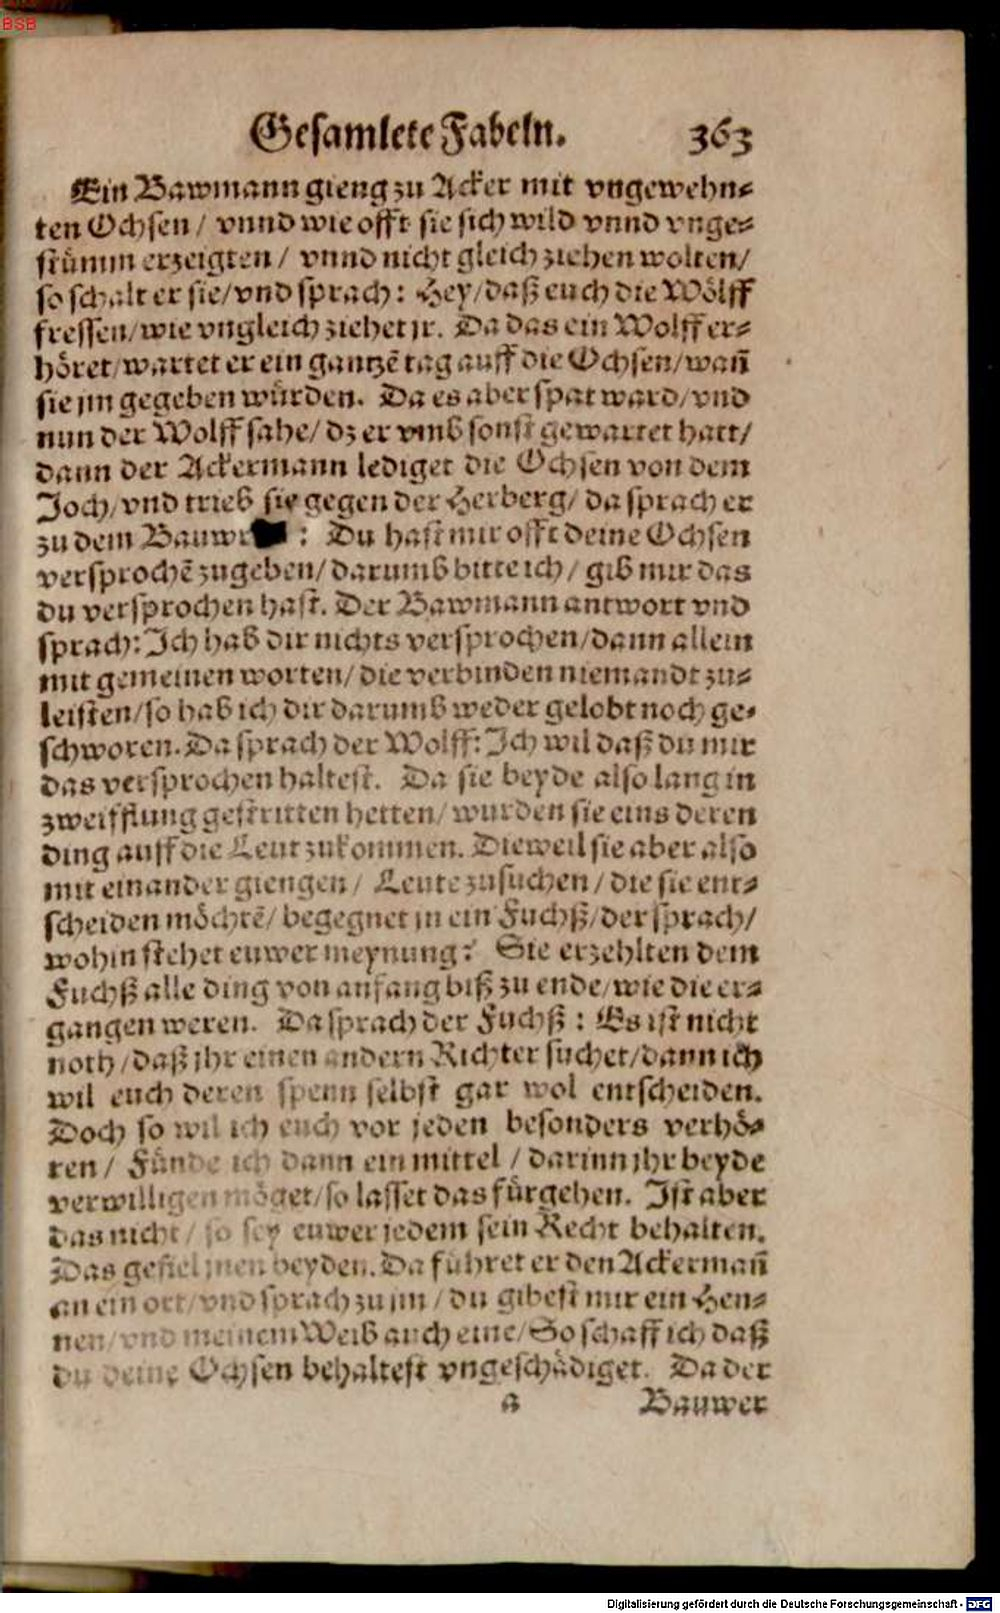 BSB
Gesamlete Fabeln. 363
Ein Bawmann gieng zu Acker mit vngewehn⸗
ten Ochsen / vnnd wie offt sie sich wild vnnd vnge⸗
stümm erzeigten / vnnd nicht gleich ziehen wolten /
so schalt er sie / vnd sprach : Hey / daß euch die Wölff
fressen / wie vngleich ziehet jr. Da das ein Wolff er⸗
höret / wartet er ein gantzẽ tag auff die Ochsen / wañ
sie jm gegeben würden. Da es aber spat ward / vnd
nun der Wolff sahe / dz er vmb sonst gewartet hatt /
dann der Ackermann lediget die Ochsen von dem
Joch / vnd trieb sie gegen der Herberg / da sprach er
zu dem : Du hast mir offt deine Ochsen
versprochẽ zugeben / darumb bitte ich / gib mir das
du versprochen hast. Der Bawmann antwort vnd
sprach : Ich hab dir nichts versprochen / dann allein
mit gemeinen worten / die verbinden niemandt zu⸗
leisten / so hab ich dir darumb weder gelobt noch ge⸗
schworen. Da sprach der Wolff : Ich wil daß du mir
das versprochen haltest. Da sie beyde also lang in
zweifflung gestritten hetten / wurden sie eins deren
ding auff die Leut zukommen. Dieweil sie aber also
mit einander giengen / Leute zusuchen / die sie ent⸗
scheiden möchtẽ / begegnet jn ein Fuchß / der sprach /
wohin stehet euwer meynung? Sie erzehlten dem
Fuchß alle ding von anfang biß zu ende / wie die er⸗
gangen weren. Da sprach der Fuchß : Es ist nicht
noth / daß jhr einen andern Richter suchet / dann ich
wil euch deren spenn selbst gar wol entscheiden.
Doch so wil ich euch vor jeden besonders verhö⸗
ren / Fünde ich dann ein mittel / darinn jhr beyde
verwilligen möget / so lasset das fürgehen. Ist aber
das nicht / so sey euwer jedem sein Recht behalten.
Das gefiel jnen beyden. Da führet er den Ackermañ
an ein ort / vnd sprach zu jm / du gibest mir ein Hen⸗
nen / vnd meinem Weib auch eine / So schaff ich daß
du deine Ochsen behaltest vngeschädiget. Da der
a Bauwer
Digitalisierung gefördert durch die Deutsche Forschungsgemeinschaft - DFG